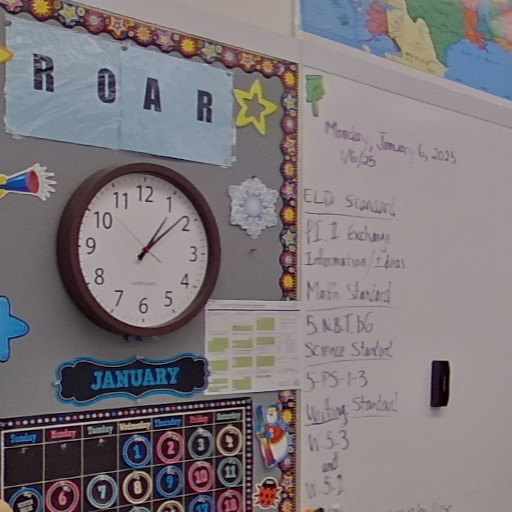 ROAR
12
1
2
3
4
5
6
7
8
9
10
11
JANUARY
Sunday Monday Tuesday Wednesday Thursday Friday Saturday
1 2 3 4
6 7 8 9 10 11
Monday, January 6, 2025
1/6/25
ELD Standard
PI. I Exchange
Information/Ideas
Math Standard
5.N.B.T.b6
Science Standard
5-PS-1-3
Writing Standard
W 5.3
and
W 5.2